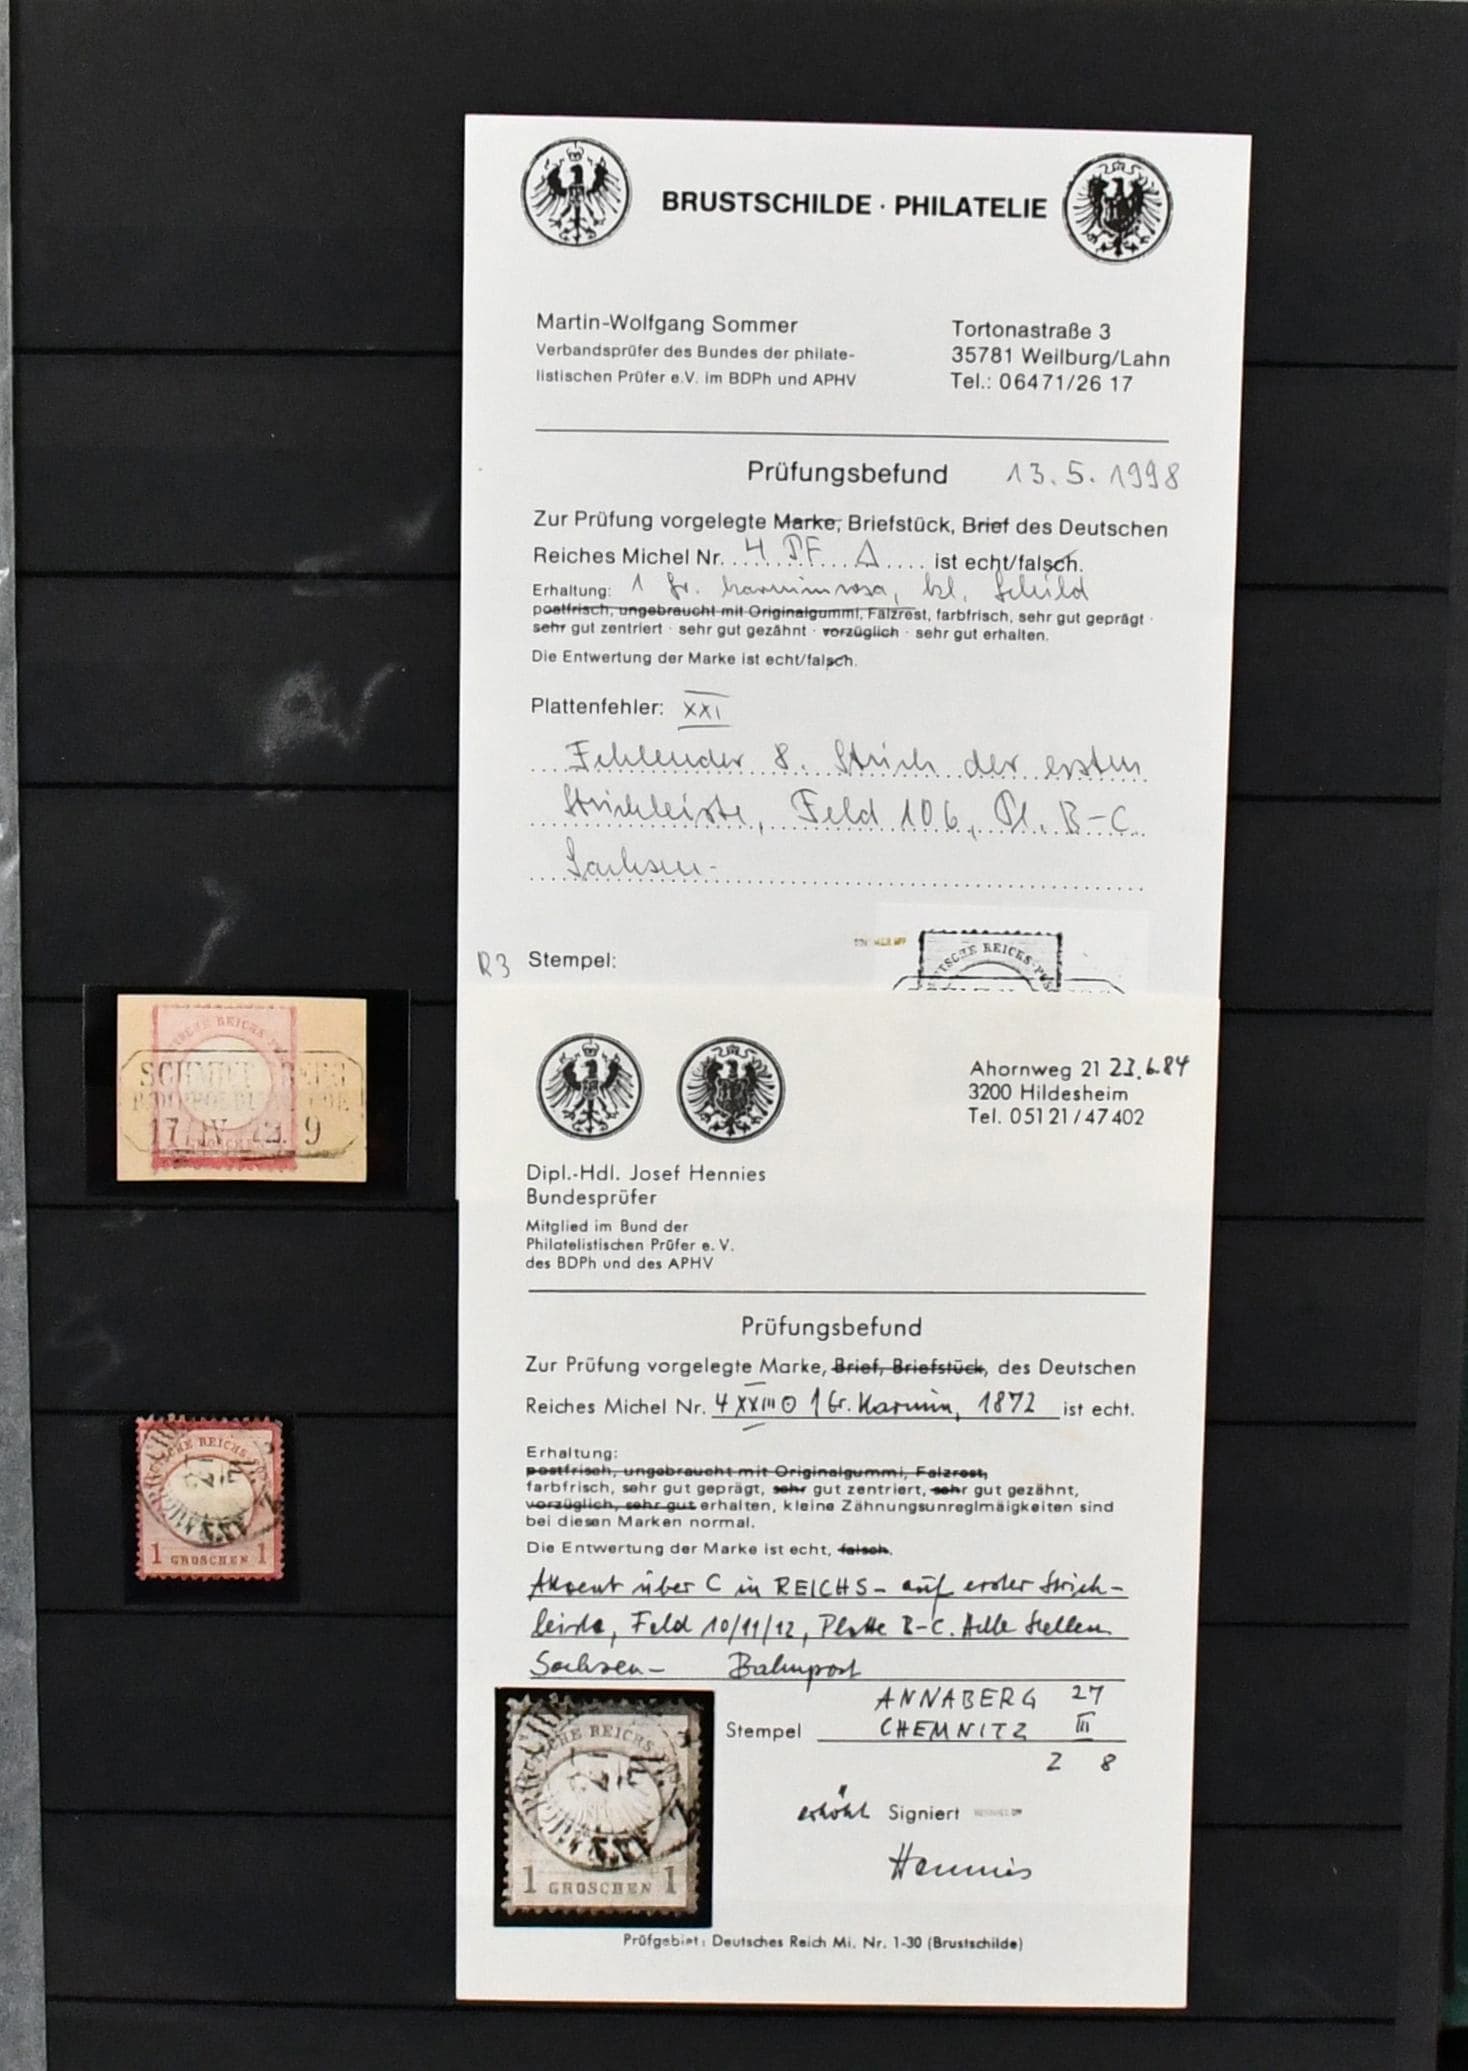 BRUSTSCHILDE · PHILATELIE
Martin-Wolfgang Sommer
Verbandsprüfer des Bundes der philate-
listischen Prüfer e.V. im BDPh und APHV
Tortonastraße 3
35781 Weilburg/Lahn
Tel.: 06471/26 17
Prüfungsbefund 13.5.1998
Zur Prüfung vorgelegte Marke, Briefstück, Brief des Deutschen
Reiches Michel Nr. 4 PF Δ ist echt/falsch.
Erhaltung: 1 Gr. karminrosa, kl. Schild
postfrisch, ungebraucht mit Originalgummi, Falzrest, farbfrisch, sehr gut geprägt ·
sehr gut zentriert · sehr gut gezähnt · vorzüglich · sehr gut erhalten.
Die Entwertung der Marke ist echt/falsch.
Plattenfehler: XXI
Fehlender 8. Strich der ersten
Strichleiste, Feld 106, Pl. B-C
Sachsen-
R3 Stempel:
SCHE REICHS-POS
SCHMIEDEBERG
17 IV 73. 9
GROSCHEN
Ahornweg 21 23.6.84
3200 Hildesheim
Tel. 05121/47402
Dipl.-Hdl. Josef Hennies
Bundesprüfer
Mitglied im Bund der
Philatelistischen Prüfer e. V.
des BDPh und des APHV
Prüfungsbefund
Zur Prüfung vorgelegte Marke, Brief, Briefstück, des Deutschen
Reiches Michel Nr. 4 XXIII ⊙ 1 Gr. Karmin, 1872 ist echt.
Erhaltung:
postfrisch, ungebraucht mit Originalgummi, Falzrest,
farbfrisch, sehr gut geprägt, sehr gut zentriert, sehr gut gezähnt,
vorzüglich, sehr gut erhalten, kleine Zähnungsunreglmäigkeiten sind
bei diesen Marken normal.
Die Entwertung der Marke ist echt, falsch.
Akzent über C in REICHS- auf erster Strich-
leiste, Feld 10/11/12, Platte B-C. Helle Stellen
Sachsen- Bahnpost
ANNABERG 27
Stempel CHEMNITZ III
Z 8
erhöht Signiert
Hennies
SCHE REICHS-
1 GROSCHEN 1
SCHE REICHS-
1 GROSCHEN 1
Prüfgebiet: Deutsches Reich Mi. Nr. 1-30 (Brustschilde)